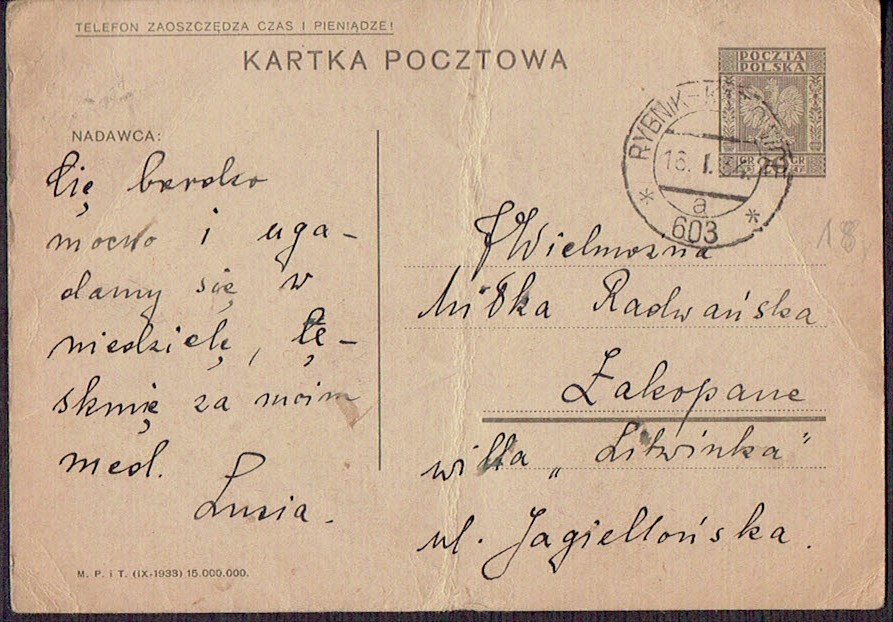 TELEFON ZAOSZCZĘDZA CZAS I PIENIĄDZE!
KARTKA POCZTOWA
POCZTA
POLSKA
GR 20 GR
RYBNIK
16. I. 34
a
603
NADAWCA:
Cię bardzo
mocno i uga-
damy się w
niedzielę, tę-
sknię za moim
med.
Lusia.
JWielmożna
Milka Radwańska
Zakopane
willa „Litwinka"
ul. Jagiellońska.
18
M. P. i T. (IX-1933) 15.000.000.